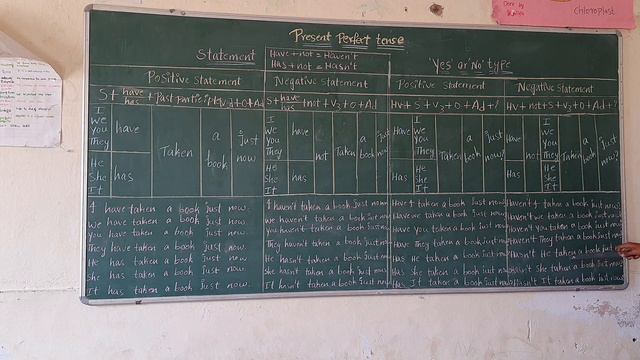 Present Perfect tense
Statement
Have + not = Haven't
Has + not = Hasn't
'Yes or No' type
Positive statement
Negative Statement
Positive Statement
Negative Statement
S + have/has + Past participle V3 + O + Ad
S + have/has + not + V3 + O + Ad
Hv + S + V3 + O + Ad + ?
Hv + not + S + V3 + O + Ad + ?
I We you They have
He She It has
Taken a book Just now
I We you They have
He She It has
not Taken a book just now
Have I We you They
Has He She It
Taken a book just now?
Have Has not
I We you They
He She It
Taken a book Just now?
I have taken a book just now.
we have taken a book just now.
you have taken a book just now.
They have taken a book just now.
He has taken a book just now
She has taken a book just now.
It has taken a book just now.
I haven't taken a book just now
we haven't taken a book just now
you haven't taken a book just now
They haven't taken a book just now
He hasn't taken a book just now
she hasn't taken a book just now
It hasn't taken a book just now
Have I taken a book just now
Have we taken a book just now
Have you taken a book just now
Have They taken a book just now
Has He taken a book just now
Has She taken a book just now
Has It taken a book just now
Haven't I taken a book just now
Haven't we taken a book just now
Haven't you taken a book just now
Haven't They taken a book just now
Hasn't He taken a book just now
Hasn't She taken a book just now
Hasn't It taken a book just now
Done by
Chloroplast